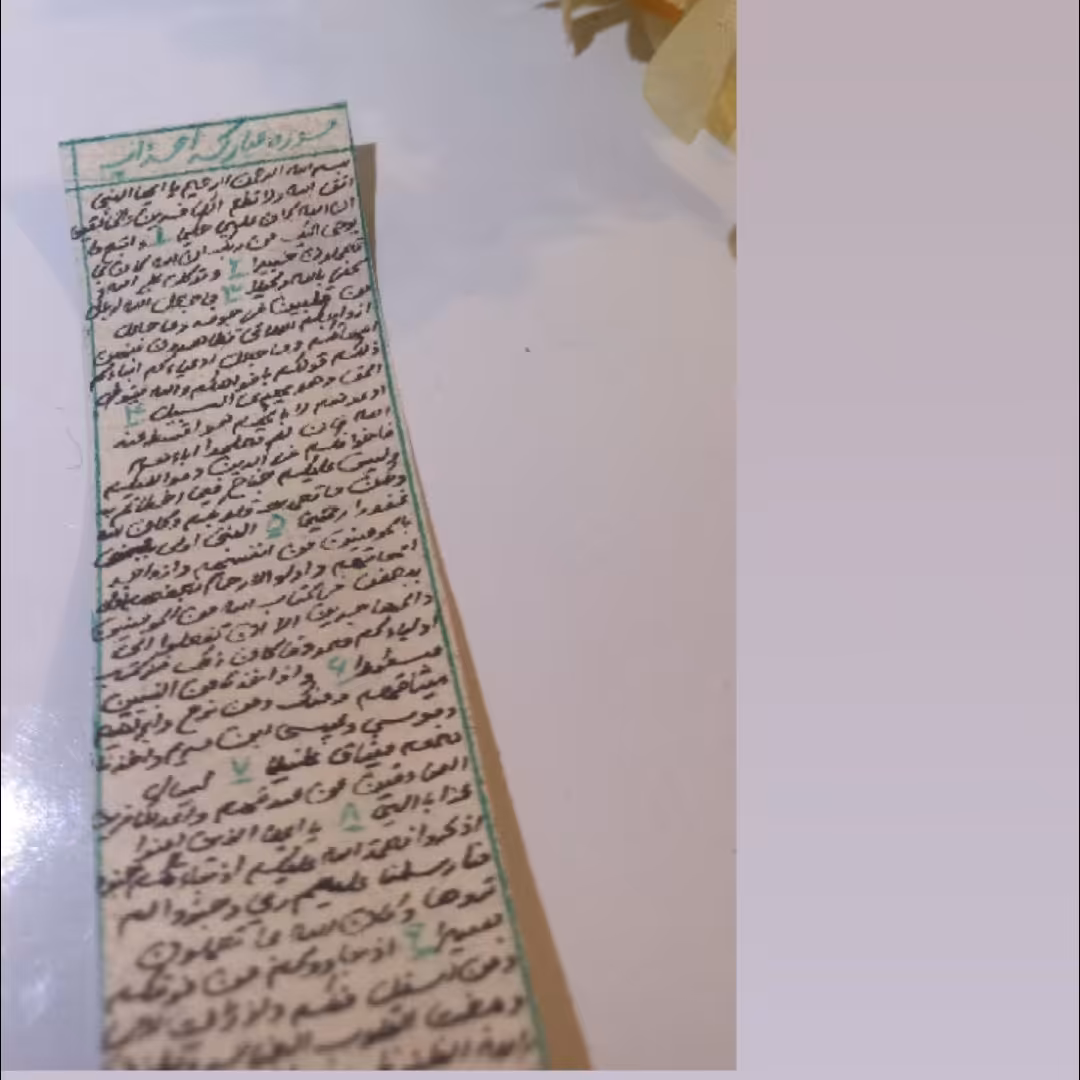 سوره مبارکه احزاب
بسم الله الرحمن الرحیم یا ایها النبی
اتق الله ولا تطع الکافرین والمنافقین
ان الله کان علیما حکیما ۱ واتبع ما
یوحی الیک من ربک ان الله کان بما
تعملون خبیرا ۲ وتوکل علی الله و
کفی بالله وکیلا ۳ ما جعل الله لرجل
من قلبین فی جوفه وما جعل
ازواجکم اللائی تظاهرون منهن
امهاتکم وما جعل ادعیاءکم ابناءکم
ذلکم قولکم بافواهکم والله یقول
الحق وهو یهدی السبیل ۴
ادعوهم لابائهم هو اقسط عند
الله فان لم تعلموا اباءهم
فاخوانکم فی الدین وموالیکم
ولیس علیکم جناح فیما اخطاتم به
ولکن ما تعمدت قلوبکم وکان الله
غفورا رحیما ۵ النبی اولی
بالمومنین من انفسهم وازواجه
امهاتهم واولو الارحام بعضهم اولی
ببعض فی کتاب الله من المومنین
والمهاجرین الا ان تفعلوا الی
اولیاءکم معروفا کان ذلک فی کتب
مسطورا ۶ واذ اخذنا من النبیین
میثاقهم ومنک ومن نوح وابراهیم
وموسی وعیسی ابن مریم واخذنا
منهم میثاقا غلیظا ۷ لیسال
الصادقین عن صدقهم واعد للکافرین
عذابا الیما ۸ یا ایها الذین امنوا
اذکروا نعمة الله علیکم اذ جاءتکم جنود
فارسلنا علیهم ریحا وجنودا لم
تروها وکان الله بما تعملون
بصیرا ۹ اذ جاووکم من فوقکم
ومن اسفل منکم واذ زاغت
وبلغت القلوب الحناجر